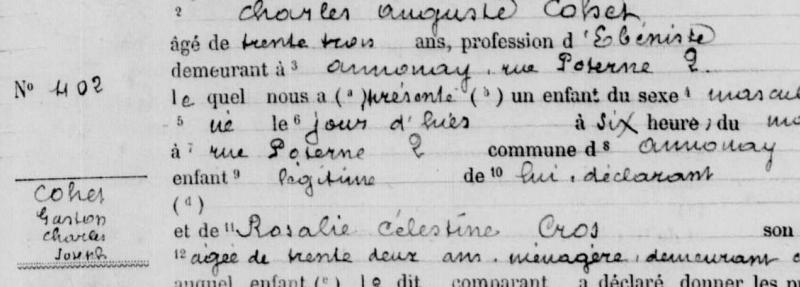 2 Charles Auguste Cohet
âgé de trente trois ans, profession d'Ebéniste
demeurant à 3 Annonay, rue Poterne 2.
No 402
le quel nous a (a) présenté (b) un enfant du sexe 4 mascul
5 né le 6 jour d'hier à six heures, du
à 7 rue Poterne 2 commune d 8 Annonay
enfant 9 légitime de 10 lui, déclarant
(d)
Cohet
Gaston
Charles
Joseph
et de 11 Rosalie Célestine Cros son
12 agée de trente deux ans, ménagère, demeurant
auquel enfant (e) le dit comparant a déclaré donner les